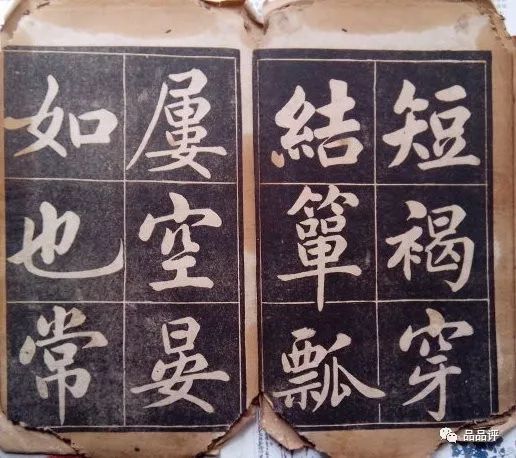 短褐穿
結簞瓢
屢空晏
如也常
品品评